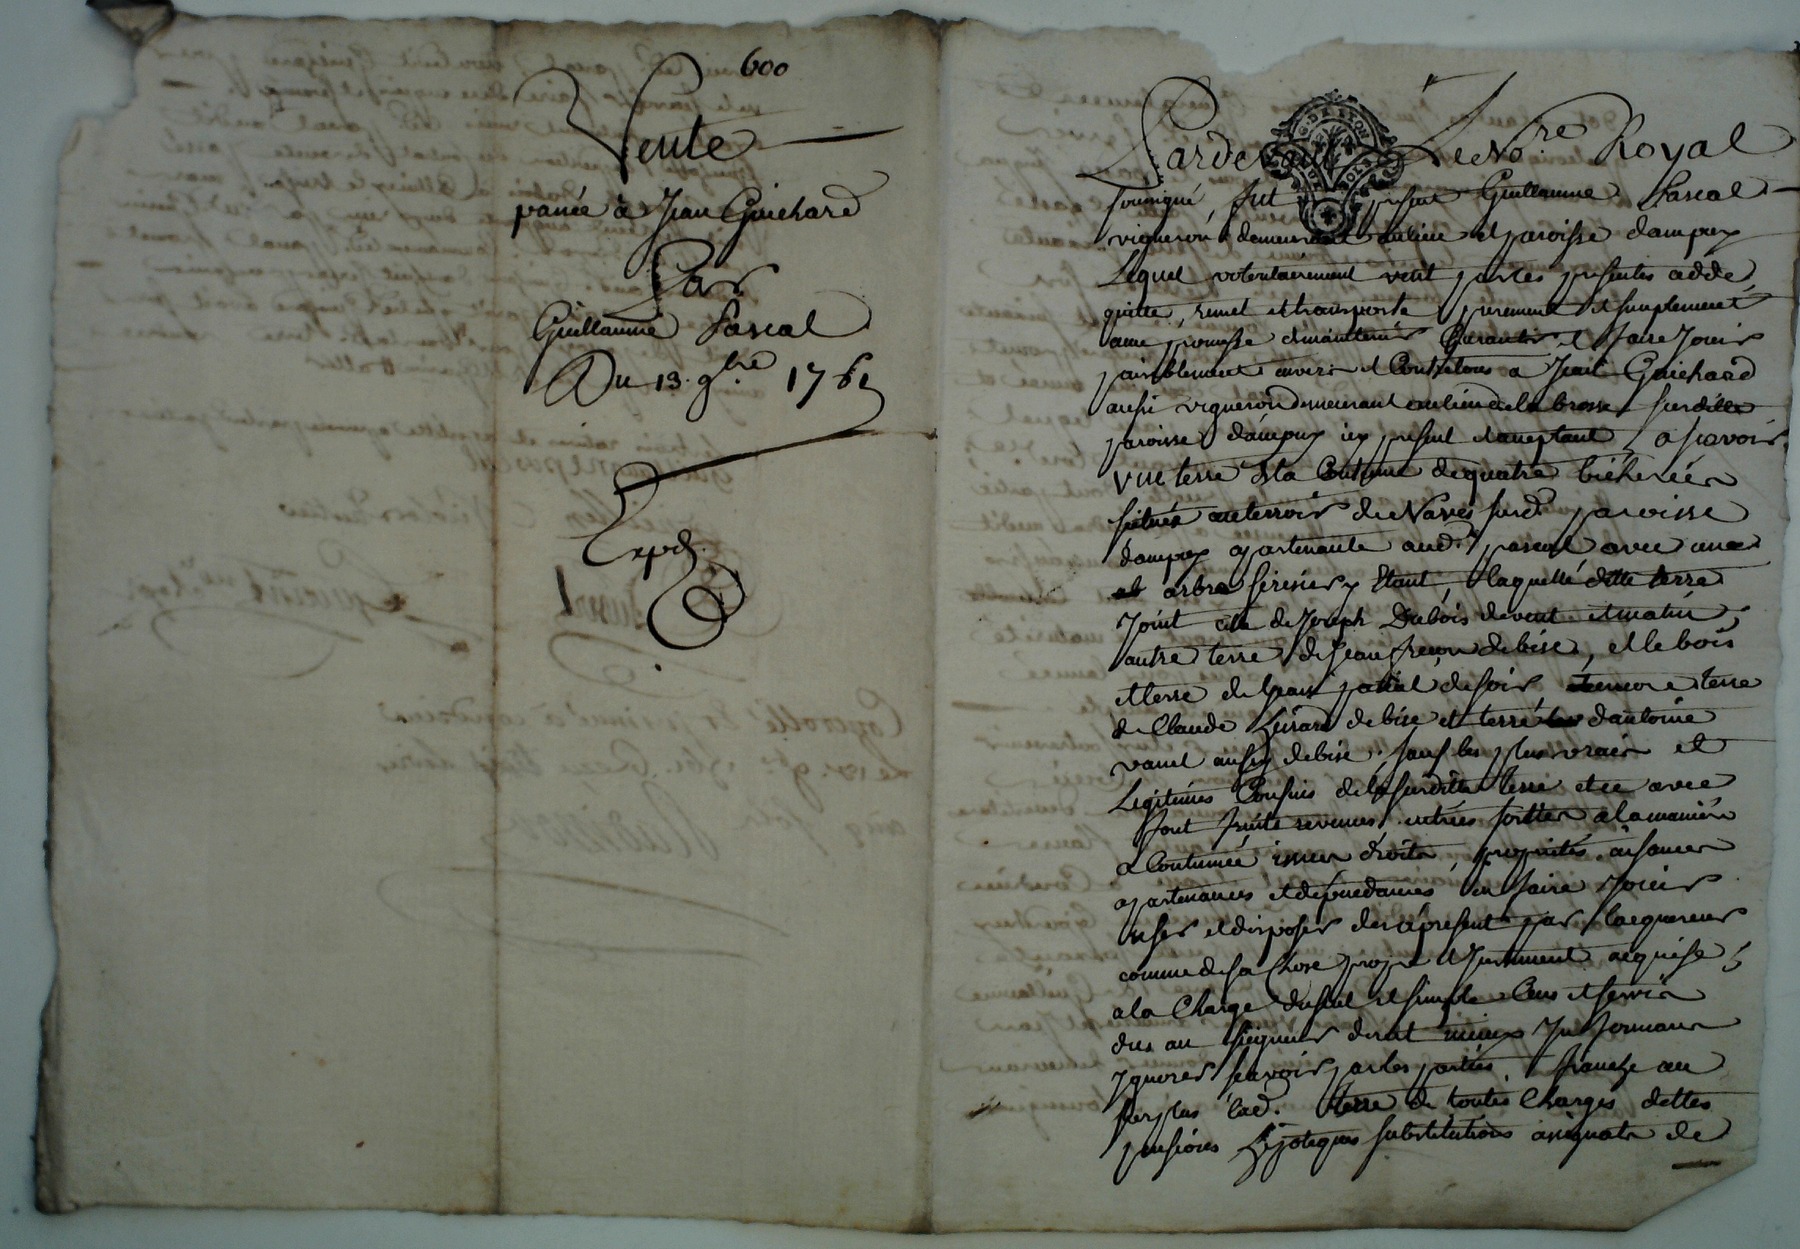 600
Vente
passée à Jean Guichard
Par
Guillaume Pascal
Du 13. 9bre 1761
Expd.
Pardevant Le No.re Royal
soussigné, fut present Guillaume Pascal
vigneron demeurant au lieu et paroisse dampuy
Lequel volontairement vent par ces presentes cedde,
quitte, remet et transporte purement et simplement
avec promesse de maintenir Garantir et faire Jouir
paisiblement envers et Contre tous a Jean Guichard
aussi vigneron demeurant au lieu de la brosse susditte
paroisse dampuy icy present et acceptant, a sçavoir
une terre de la Contenue de quatre bicherées
située au terroir de Naves susd. paroisse
dampuy apartenante aud. pascal avec un
arbre serisier y Etant, laquelle ditte terre
Joint celle de Joseph Dubois devent et matin,
autre terre de Jean freçon de bise, et le bois
et terre de Jean pascal de soir, encore terre
de Claude Gerard de bise et terre dantoine
vanel aussy de bise, sauf les plus vrais et
Legitimes Confins de la susditte terre et ce avec
font fruits revenus, entrées sorties a la maniere
acoutumée issues droits, proprietés, aisances
apartenances et dependances en faire Jouir
user et disposer des apresent par lacquereur
comme de sa Chose propre et Justement acquise,
a la Charge du seul et simple Cens et servis
dus au seigneur dont mieux Informance
Ignorer sçavoir par les parties, franche au
surplus lad. terre de toutes Charges dettes
pensions hypoteques substitutions assignats de